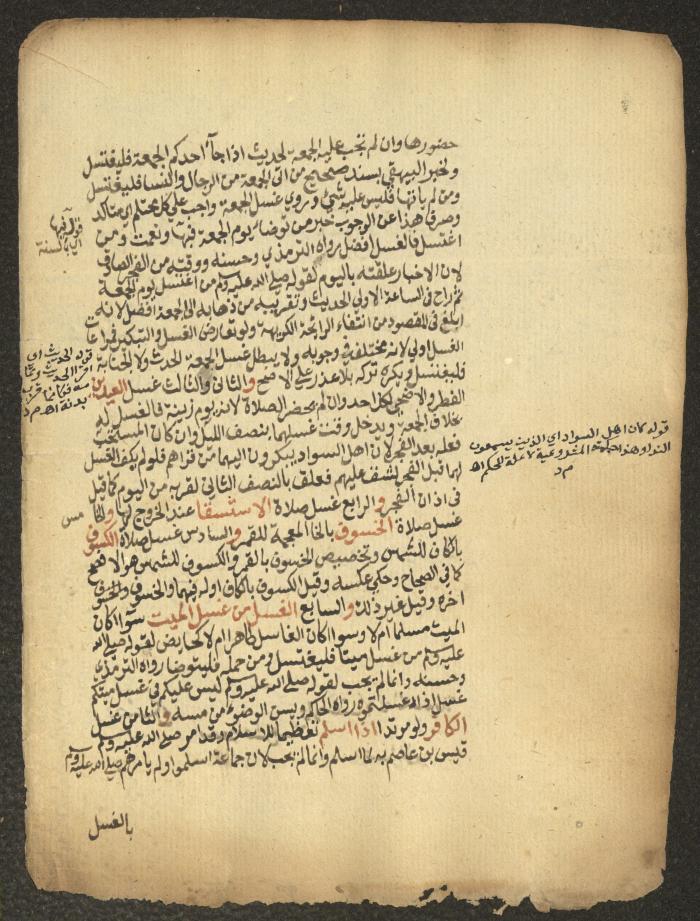 حضورها وان لم تجب عليه الجمعة لحديث اذا جاء احدكم الجمعة فليغتسل
ولخبر البيهقي بسند صحيح من اتى الجمعة من الرجال والنسا فليغتسل
ومن لم ياتها فليس عليه شي وروي غسل الجمعة واجب على كل محتلم اي متاكد
وصرف هذا عن الوجوب خبر من توضا يوم الجمعة فبها ونعمت ومن
اغتسل فالغسل افضل رواه الترمذي وحسنه ووقته من الفجر الصادق
لان الاخبار علقته باليوم لقوله صلى الله عليه وسلم من اغتسل يوم الجمعة
ثم راح في الساعة الاولى الحديث وتقريبه من ذهابه الى الجمعة افضل لانه
ابلغ في المقصود من انتفاء الرائحة الكريهة ولو تعارض الغسل والتبكير فمراعات
الغسل اولى لانه مختلف في وجوبه ولا يبطل غسل الجمعة الحدث ولا الجنابة
فليغتسل ويكره تركه بلا عذر على الاصح والثاني والثالث غسل العيدين
الفطر والاضحى لكل احد وان لم يحضر الصلاة لانه يوم زينة فالغسل له
بخلاف الجمعة ويدخل وقت غسلهما بنصف الليل وان كان المستحب
فعله بعد الفجر لان اهل السواد يبكرون اليهما من قراهم فلو لم يكف الغسل
لهما قبل الفجر لشق عليهم فعلق بالنصف الثاني لقربه من اليوم كما قيل
في اذان الفجر والرابع غسل صلاة الاستسقا عند الخروج لها والخامس
غسل صلاة الخسوف بالخا المعجمة للقمر والسادس غسل صلاة الكسوف
بالكاف للشمس وتخصيص الخسوف بالقمر والكسوف للشمس هو الافصح
كما في الصحاح وحكي عكسه وقيل الكسوف بالكاف اوله فيهما والخسوف
اخره وقيل غير ذلك والسابع الغسل من غسل الميت سوا اكان
الميت مسلما ام لا وسوا اكان الغاسل طاهرا ام لا كحايض لقوله صلى الله
عليه وسلم من غسل ميتا فليغتسل ومن حمله فليتوضا رواه الترمذي
وحسنه وانما لم يجب لقوله صلى الله عليه وسلم ليس عليكم في غسل ميتكم
غسل اذا غسلتموه رواه الحاكم ويسن الوضوء من مسه والثامن غسل
الكافر ولو مرتدا اذا اسلم تعظيما للاسلام وقد امر صلى الله عليه وسلم
قيس بن عاصم به لما اسلم وانما لم يجب لان جماعة اسلموا ولم يامرهم صلى الله عليه وسلم
بالغسل
قوله فبها
اي بالسنة
قوله الحدث اي
بدنة اه م د
قوله لان اهل السواد اي الذين يسمعون
النداء وهذا حكمة المشروعية لا علة للحكم اه
م د